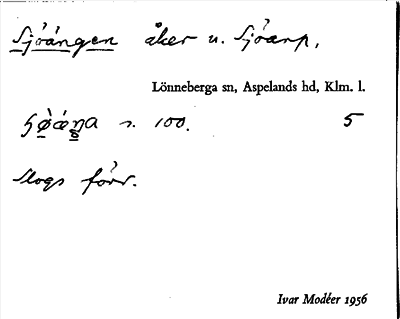 Sjöängen åker u. Sjöarp,
Lönneberga sn, Aspelands hd, Klm. l.
s. 100. 5
slogs förr.
Ivar Modéer 1956